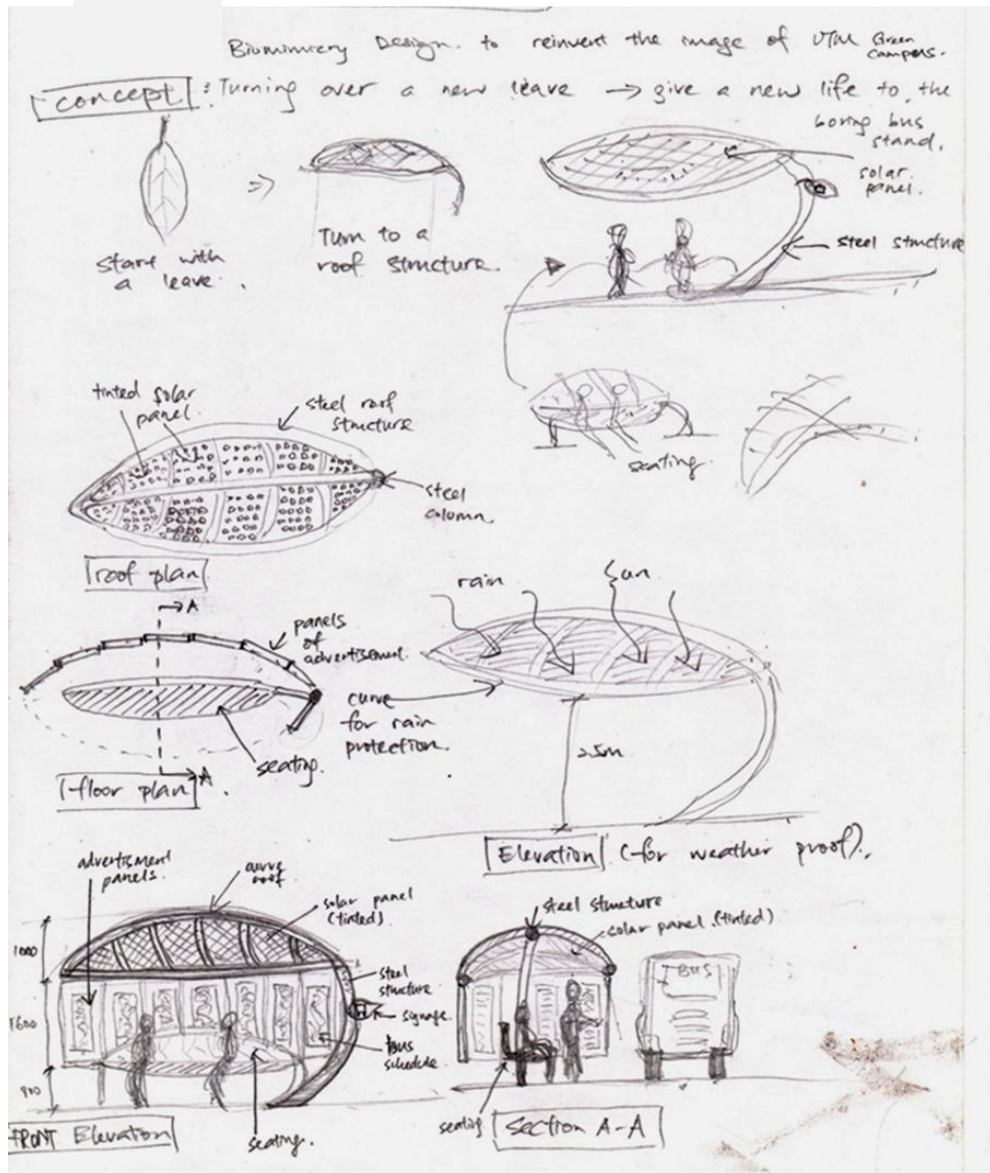 Biomimicry Design. to reinvent the image of UTM Green
campus.
concept : Turning over a new leave → give a new life to the
boring bus
stand.
solar
panel.
steel structure
start with
a leave.
Turn to a
roof structure.
seating
tinted solar
panel.
steel roof
structure
steel
column
roof plan
A
panels
of
advertisement.
seating.
A
floor plan
rain
sun
curve
for rain
protection.
2.5m
Elevation (for weather proof).
advertisment
panels.
curve
roof
solar panel
(tinted).
steel
structure
signage
bus
schedule
1000
1600
900
seating.
FRONT Elevation
steel structure
solar panel (tinted)
BUS
seating
Section A-A